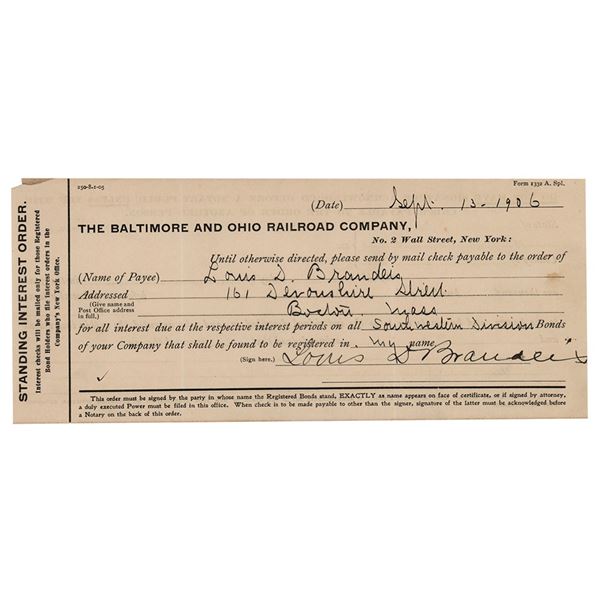 STANDING INTEREST ORDER.
Interest checks will be mailed only for those Registered
Bond Holders who file interest orders in the
Company's New York Office.
150-8-1-05
Form 1332 A. Spl.
(Date) Sept. 13-1906
THE BALTIMORE AND OHIO RAILROAD COMPANY,
No. 2 Wall Street, New York:
Until otherwise directed, please send by mail check payable to the order of
(Name of Payee) Louis D. Brandeis
Addressed 161 Devonshire Street
(Give name and
Post Office address
in full.) Boston Mass
for all interest due at the respective interest periods on all Southwestern Division Bonds
of your Company that shall be found to be registered in my name
(Sign here.) Louis D Brandeis
This order must be signed by the party in whose name the Registered Bonds stand, EXACTLY as name appears on face of certificate, or if signed by attorney,
a duly executed Power must be filed in this office. When check is to be made payable to other than the signer, signature of the latter must be acknowledged before
a Notary on the back of this order.